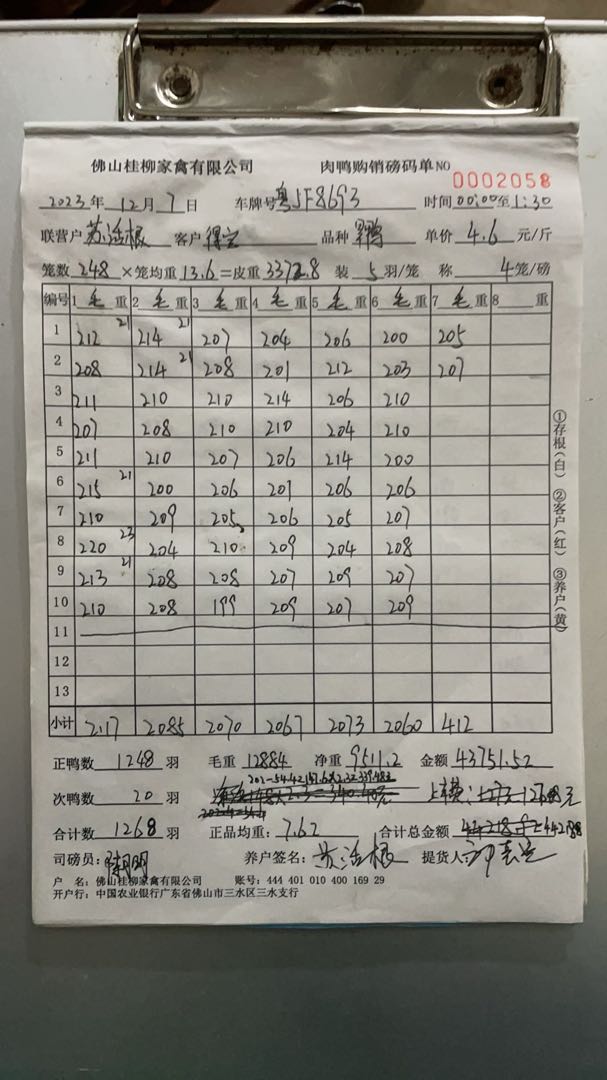 佛山桂柳家禽有限公司 肉鸭购销磅码单NO 0002058
2023年 12月 7日 车牌号 粤JF8693 时间 00:00至1:30
联营户 苏活根 客户 品种 单价 4.6 元/斤
笼数 248 ×笼均重 13.6 =皮重 3372.8 装 5 羽/笼 称 4 笼/磅
编号 1 毛重 2 毛重 3 毛重 4 毛重 5 毛重 6 毛重 7 毛重 8 重
1 212 21 214 21 207 204 206 200 205
2 208 214 21 208 201 212 203 207
3 211 210 210 214 206 210
4 207 208 210 210 204 210
5 211 210 207 206 214 200
6 215 21 200 206 201 206 206
7 210 209 205 206 205 207
8 220 23 204 210 209 204 208
9 213 21 208 208 207 209 207
10 210 208 199 209 207 209
11
12
13
小计 2117 2085 2070 2067 2073 2060 412
①存根(白) ②客户(红) ③养户(黄)
正鸭数 1248 羽 毛重 12884 净重 9511.2 金额 43751.52
次鸭数 20 羽
合计数 1268 羽 正品均重: 7.62 合计总金额
司磅员: 养户签名: 苏活根 提货人:
户 名: 佛山桂柳家禽有限公司 账号: 444 401 010 400 169 29
开户行: 中国农业银行广东省佛山市三水区三水支行